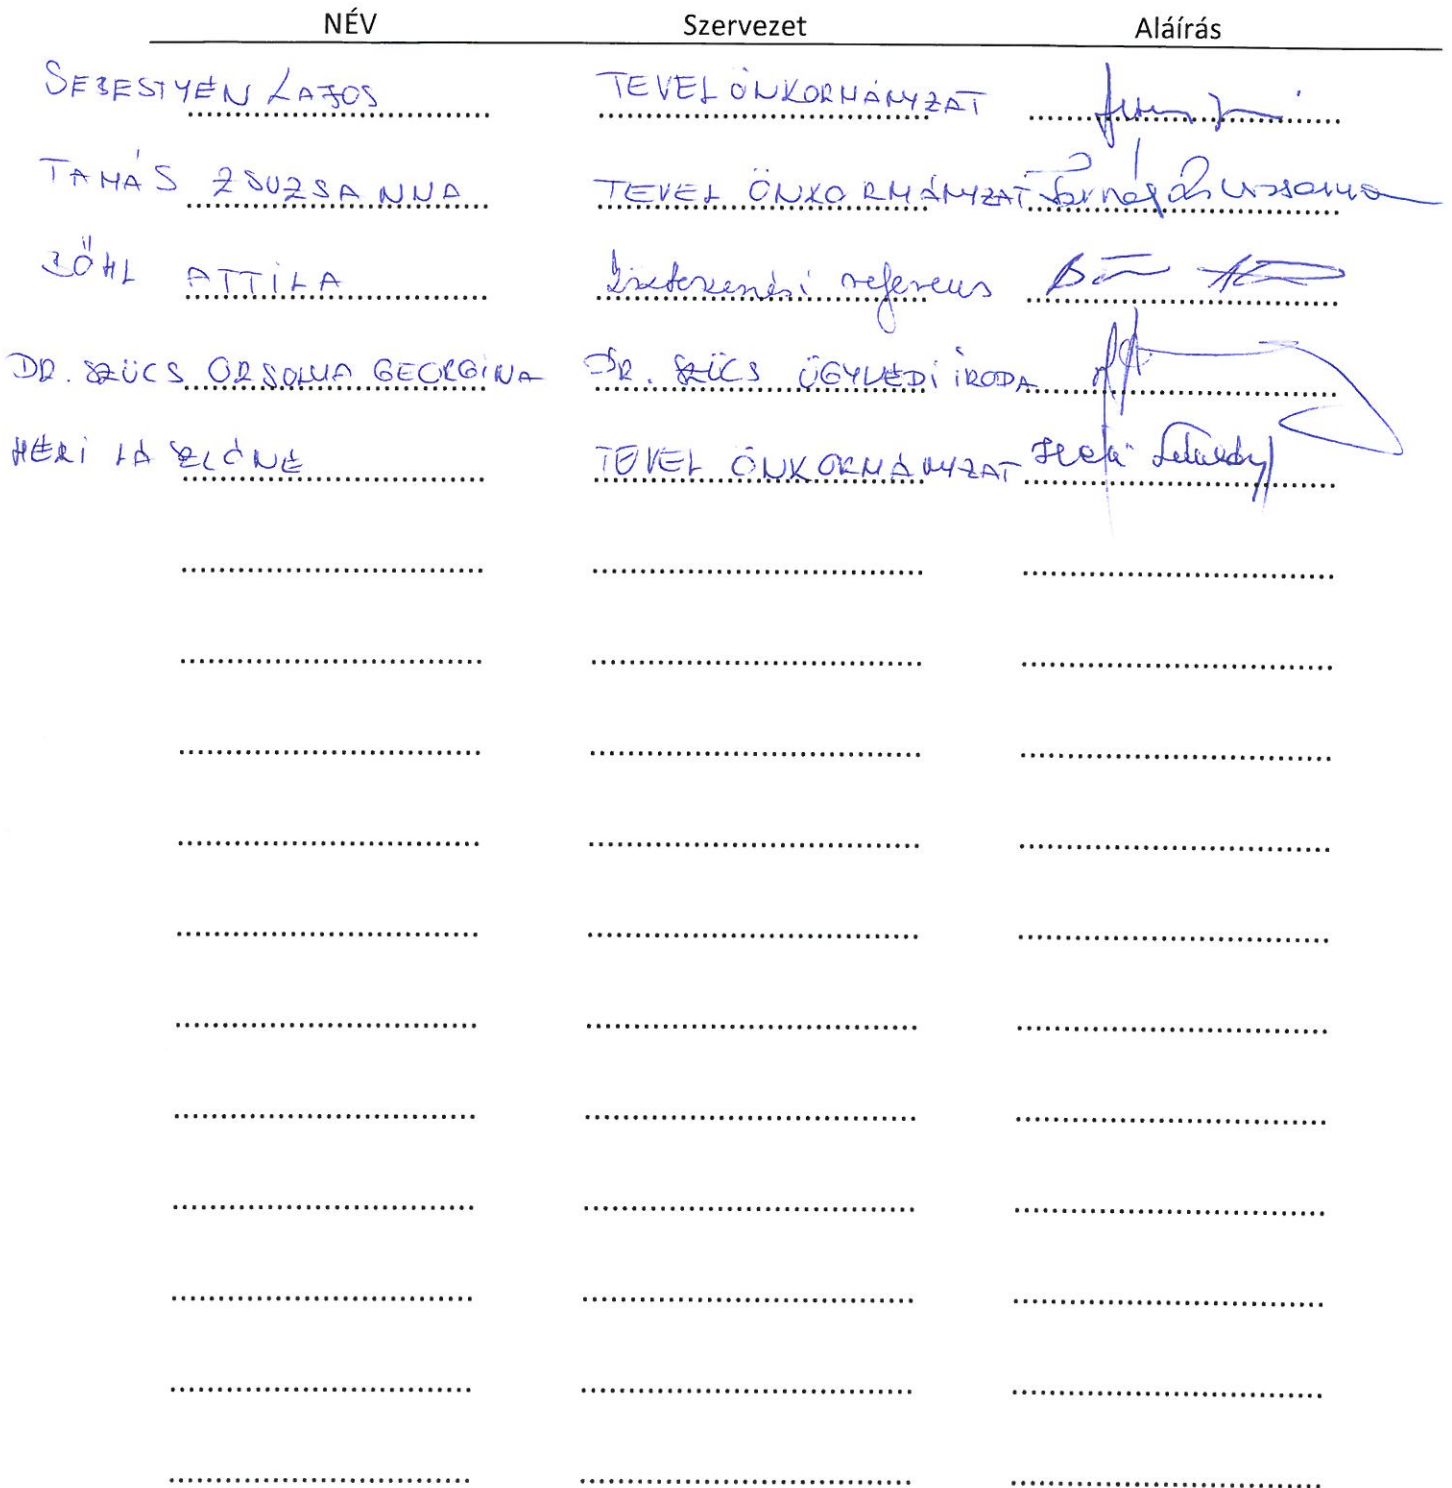 NÉV Szervezet Aláírás
SEBESTYÉN LAJOS TEVEL ÖNKORMÁNYZAT
TAMÁS ZSUZSANNA TEVEL ÖNKORMÁNYZAT Tamás Zsuzsanna
BŐHL ATTILA referens
DR. SZŰCS ORSOLYA GEORGINA DR. SZŰCS ÜGYVÉDI IRODA
HÉRI LÁSZLÓNÉ TEVEL ÖNKORMÁNYZAT Héri Lászlóné